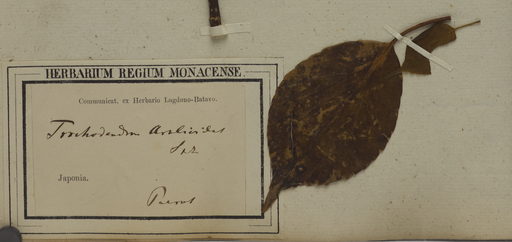 HERBARIUM REGIUM MONACENSE.
Communicat. ex Herbario Lugduno-Batavo.
Trochodendron Aralioides
S & Z
Japonia.